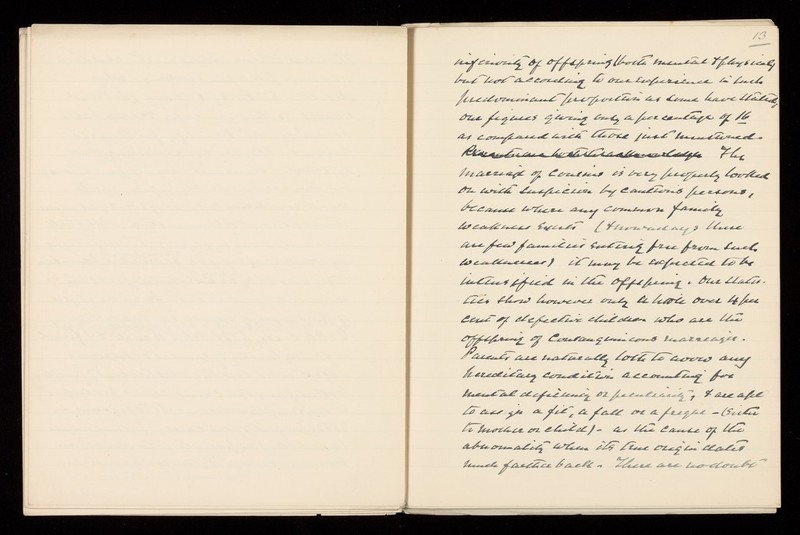 13
inferiority of offspring (both mental & physical)
but not according to our experience in such
predominant proportion as some have stated,
our figures giving only a percentage of 16
as compared with those just mentioned.
The
marriage of cousins is very properly looked
on with suspicion by cautious persons,
because where any common family
weakness exists (& nowadays there
are few families entirely free from such
weaknesses) it may be expected to be
intensified in the offspring. Our statis-
tics show however only a little over 4 per
cent of defective children who are the
offspring of consanguineous marriages.
Parents are naturally loth to avow any
hereditary condition accounting for
mental deficiency or peculiarity, & are apt
to assign a fit, a fall or a fright - (either
to mother or child) - as the cause of the
abnormality when its true origin dates
much farther back. There are no doubt